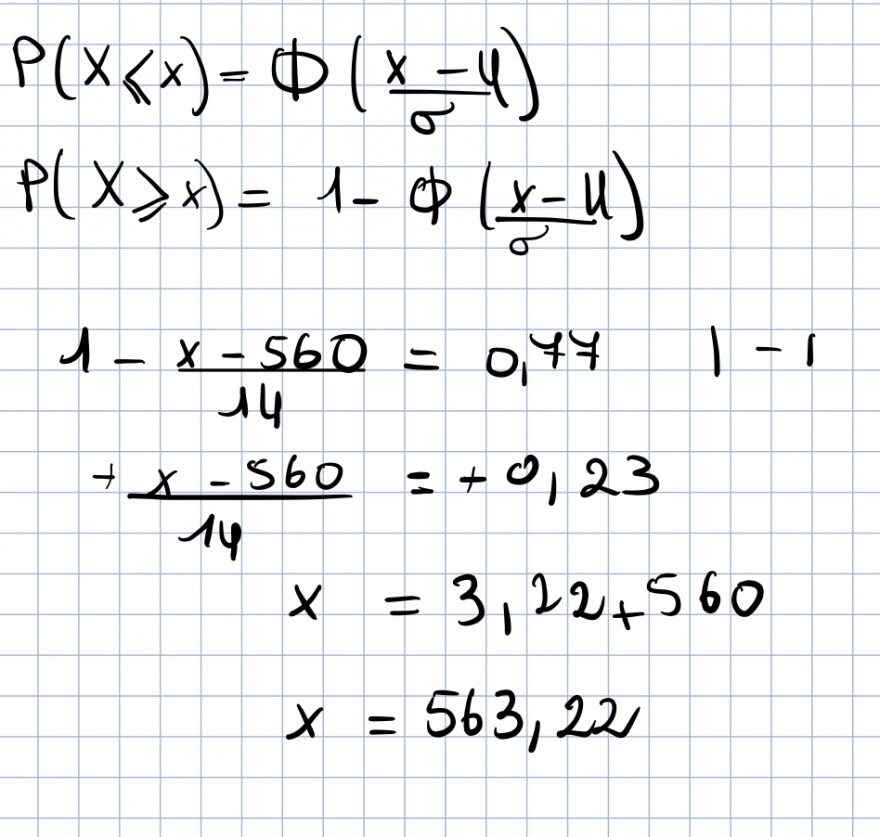 P(X ⩽ x) = Φ (x - μ / σ)
P(X ⩾ x) = 1 - Φ (x - μ / σ)
1 - x - 560 / 14 = 0,77 | - 1
+ x - 560 / 14 = + 0,23
x = 3,22 + 560
x = 563,22